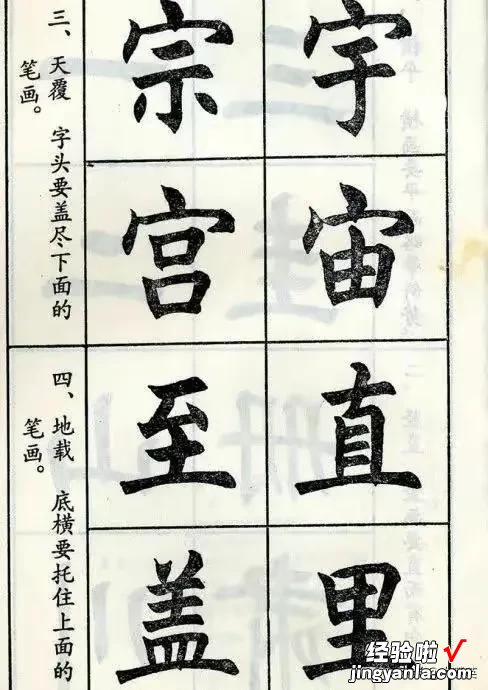 三、天覆 字头要盖尽下面的
笔画。
宇
宙
宗
宫
四、地载 底横要托住上面的
笔画。
直
里
至
盖
经验啦√
jingyanla.com